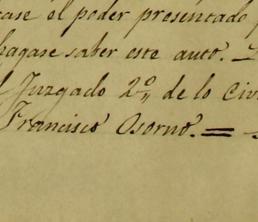 case el poder presentado
hagase saber este auto.
Juzgado 2º de lo Civ
Francisco Osorno. =